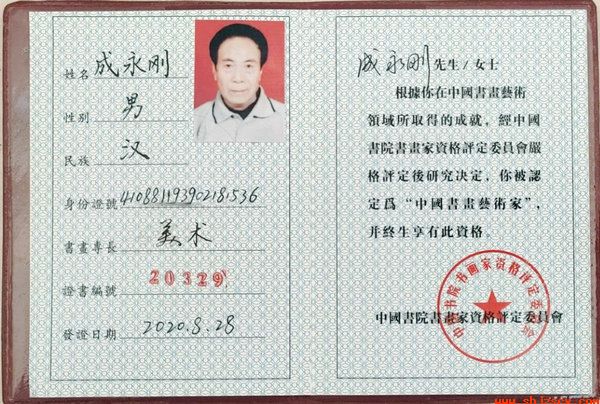 姓名 成永刚
性别 男
民族 汉
身份證號 410881193902181536
書畫專長 美术
證書編號 20329
發證日期 2020.8.28
成永刚 先生/女士
根據你在中國書畫藝術
領域所取得的成就，經中國
書院書畫家資格評定委員會嚴
格評定後研究决定，你被認
定爲“中國書畫藝術家”，
并終生享有此資格。
中國書院書畫家資格評定委員會
中国书院书画家资格评定委员会